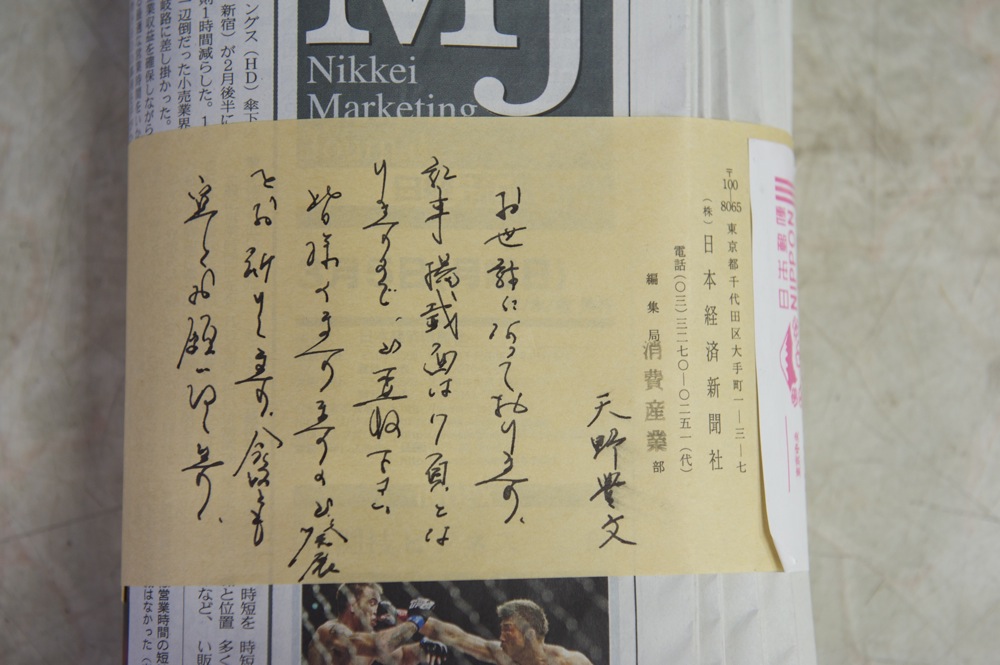 MJ
Nikkei
Marketing
〒100-8065 東京都千代田区大手町一―三―七
(株) 日本経済新聞社
電話(〇三)三二七〇―〇二五一(代)
編集局消費産業部
天野豊文
お世話になっております。
記事掲載面は17頁とな
りますので、ご査収下さい
皆様の益々のご発展
をお祈りします。今後とも
宜しくお願い申し上げます。
ングス(HD)傘下
新宿)が2月後半に
則1時間減らした。1
一辺倒だった小売業界
岐路に差し掛かった。
業収益を確保しながら
時短を
と位置
など、
時短
多く
い販
営業時間の短
はなかった
NIPPON